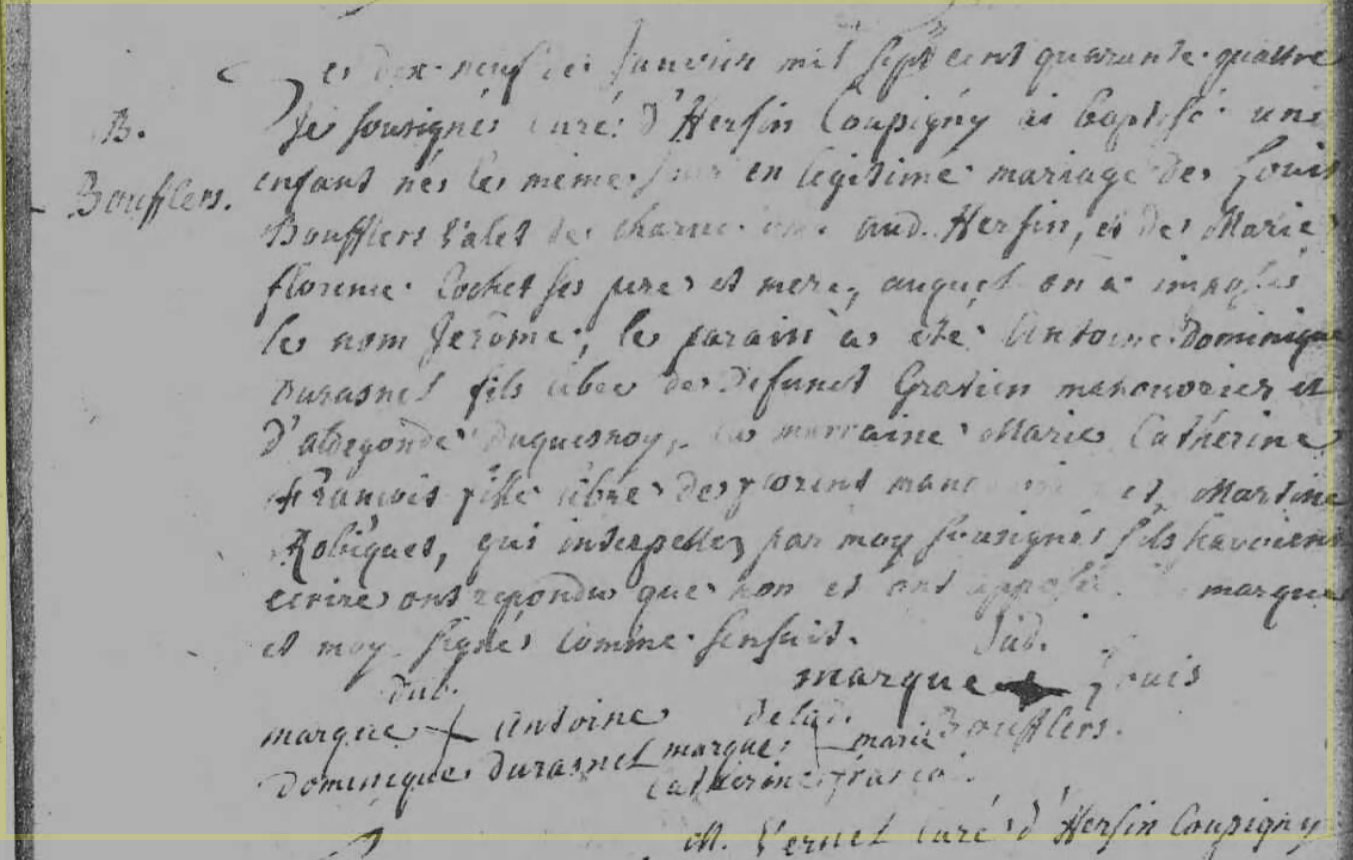 Le dix neufvie Janvier mil sept cent quarante quattre
B. Je sousignés curé d'Hersin Coupigny ai baptisé un
Boufflers. enfant nés le même jour en legitime mariage de Louis
Boufflers valet de charue aud. Hersin, et de Marie
florence Cochet ses pere et mere, auquel on a imposés
le nom Jerôme, le parain a été Antoine Dominique
Durasnel fils libre de defunct Gratien manouvrier et
d'aldegonde Duquesnoy, la marraine Marie Catherine
francois fille libre de florent et Martine
Robiquet, qui interpellez par moy sousignés s'ils scavoient
ecrire ont repondu que non et ont apposé marque
et moy signés comme s'ensuit.
dud.
marque Louis
Boufflers.
dud.
marque Antoine
Dominique durasnel
de lad.
marque marie
catherine francoi
M. Vernel curé d'Hersin Coupigny